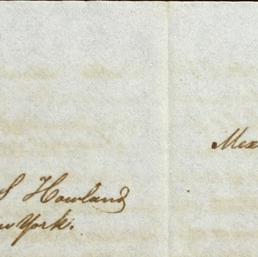 Mex
S Howland
w York.